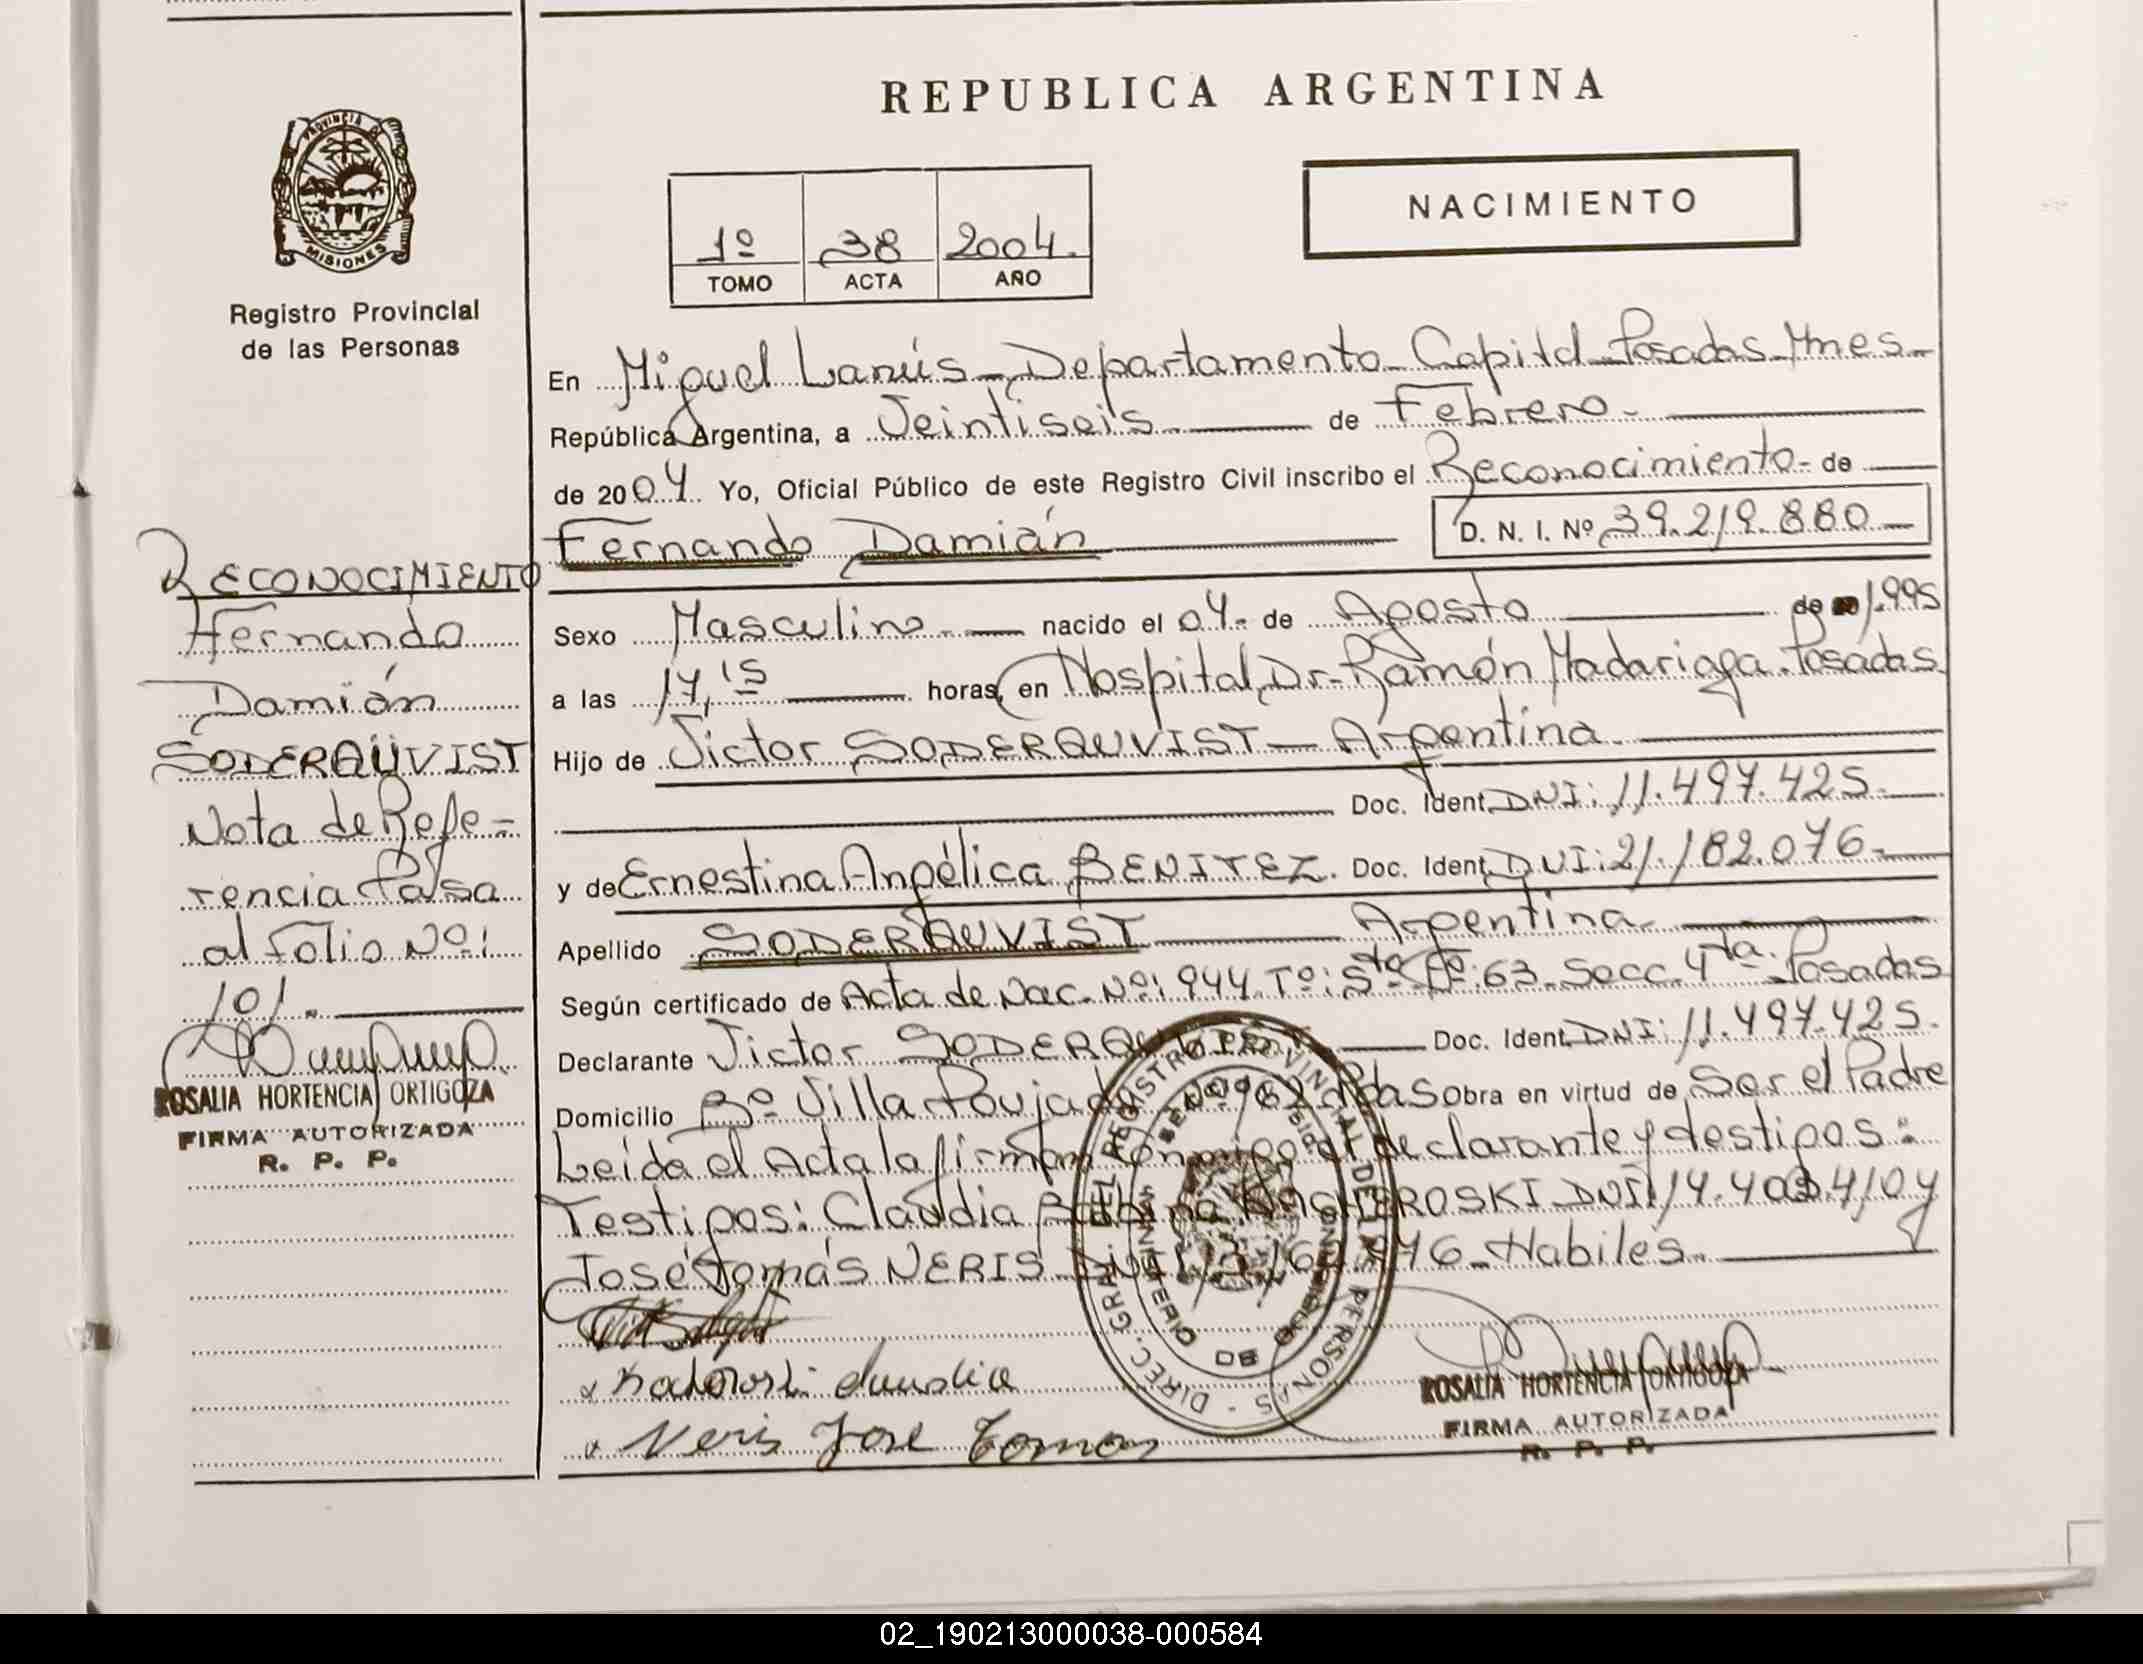 REPUBLICA ARGENTINA
PROVINCIA DE
MISIONES
NACIMIENTO
1º 38 2004.
TOMO ACTA AÑO
Registro Provincial
de las Personas
En Miguel Lanús - Departamento Capital Posadas Mnes-
República Argentina, a Veintiseis de Febrero-
de 2004. Yo, Oficial Público de este Registro Civil inscribo el Reconocimiento- de
Fernando Damián D. N. I. Nº 39.219.880
Sexo Masculino.- nacido el 04. de Agosto de 1.995
a las 17,15 horas, en Hospital Dr. Ramón Madariaga. Posadas.
Hijo de Victor SODERQUVIST - Argentina.
Doc. Ident. DNI: 11.497.425.
y de Ernestina Angélica BENITEZ. Doc. Ident. DNI: 21.182.076.
Apellido SODERQUVIST Argentina.
Según certificado de Acta de Nac. Nº: 944 Tº: 5to Fº: 63. Secc. 4ta. Posadas
Declarante Victor Doc. Ident. DNI: 11.497.425.
Domicilio Bº Villa Poujade Nº 962 Pdas Obra en virtud de Ser el Padre
Leida el Acta la firman conmigo el declarante y testigos:
Testigos: Claudia DNI
José Tomás NERIS Habiles.
RECONOCIMIENTO
Fernando
Damián
SODERQÜVIST
Nota de Refe-
rencia Pasa
al folio Nº:
101.
ROSALIA HORTENCIA ORTIGOZA
FIRMA AUTORIZADA
R. P. P.
Neris Jose Tomas
DIREC. GRAL. DEL REGISTRO PROVINCIAL DE LAS PERSONAS
ROSALIA HORTENCIA ORTIGOZA
FIRMA AUTORIZADA
R. P. P.
02_190213000038-000584